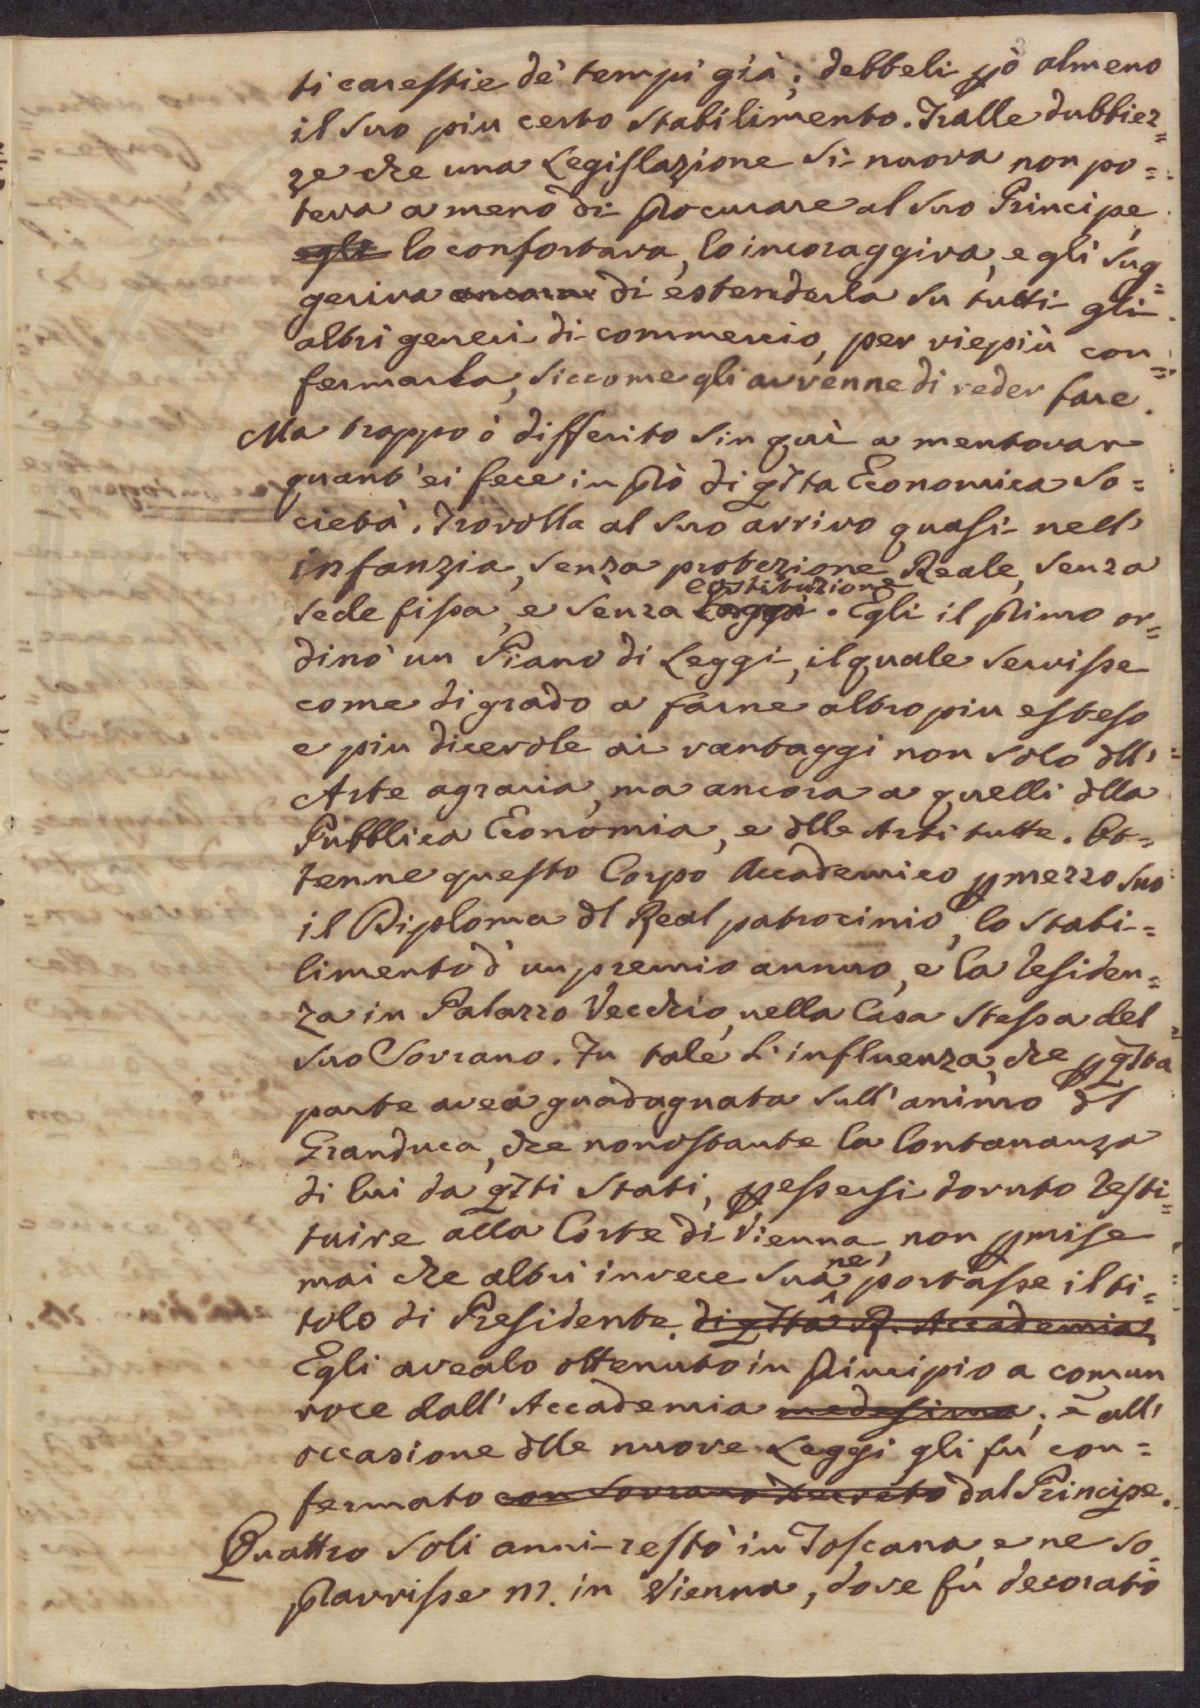 ti carestie de' tempi già; debbeli pò almeno
il suo piu certo stabilimento. Tralle dubbiez=
ze che una Legislazione sì nuova non po=
teva a meno di procurare al suo Principe,
egli lo confortava, lo incoraggiva, e gli sug=
geriva ancora di estenderla su tutti gli
altri generi di commercio, per viepiù con=
fermarla, siccome gli avvenne di veder fare.
Ma troppo ò differito sin quì a mentovar
quant' ei fece in prò di qsta Economica So=
cietà. Trovolla al suo arrivo quasi nell'
infanzia, senza protezione Reale, senza
costituzione
sede fissa, e senza Leggi. Egli il primo or=
dinò un Piano di Leggi, il quale servisse
come di grado a farne altro piu esteso
e piu dicevole ai vantaggi non solo dll'
Arte agraria, ma ancora a quelli dlla
Pubblica Economia, e dlle Arti tutte. Ot=
tenne questo Corpo Accademico p mezzo suo
il Diploma dl Real patrocinio, lo stabi=
limento d' un premio annuo, e la residen=
za in Palazzo Vecchio, nella Casa stessa del
suo Sovrano. Fu tale l' influenza, che p qsta
parte avea guadagnata sull' animo dl
Granduca, che nonostante la lontananza
di lui da qsti Stati, p essersi dovuto resti=
tuire alla Corte di Vienna, non pmise
mai che altri invece sua ne portasse il ti=
tolo di Presidente. di qsta R. Accademia.
Egli avealo ottenuto in principio a comun
voce dall' Accademia medesima; e all'
occasione dlle nuove Leggi gli fù con=
fermato con Sovrano Decreto dal Principe.
Quattro soli anni restò in Toscana, e ne so=
pravvisse n. in Vienna, dove fù decorato